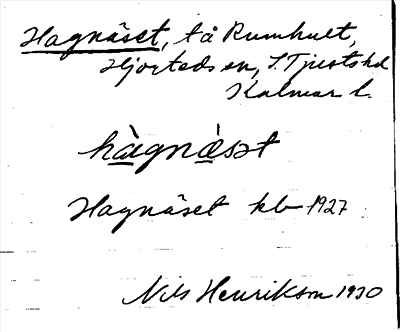 Hagnäset, tå Rumhult,
Hjorteds sn, S. Tjusts hd
Kalmar l.
hàgnǽsət
Hagnäset kb 1927
Nils Henrikson 1930